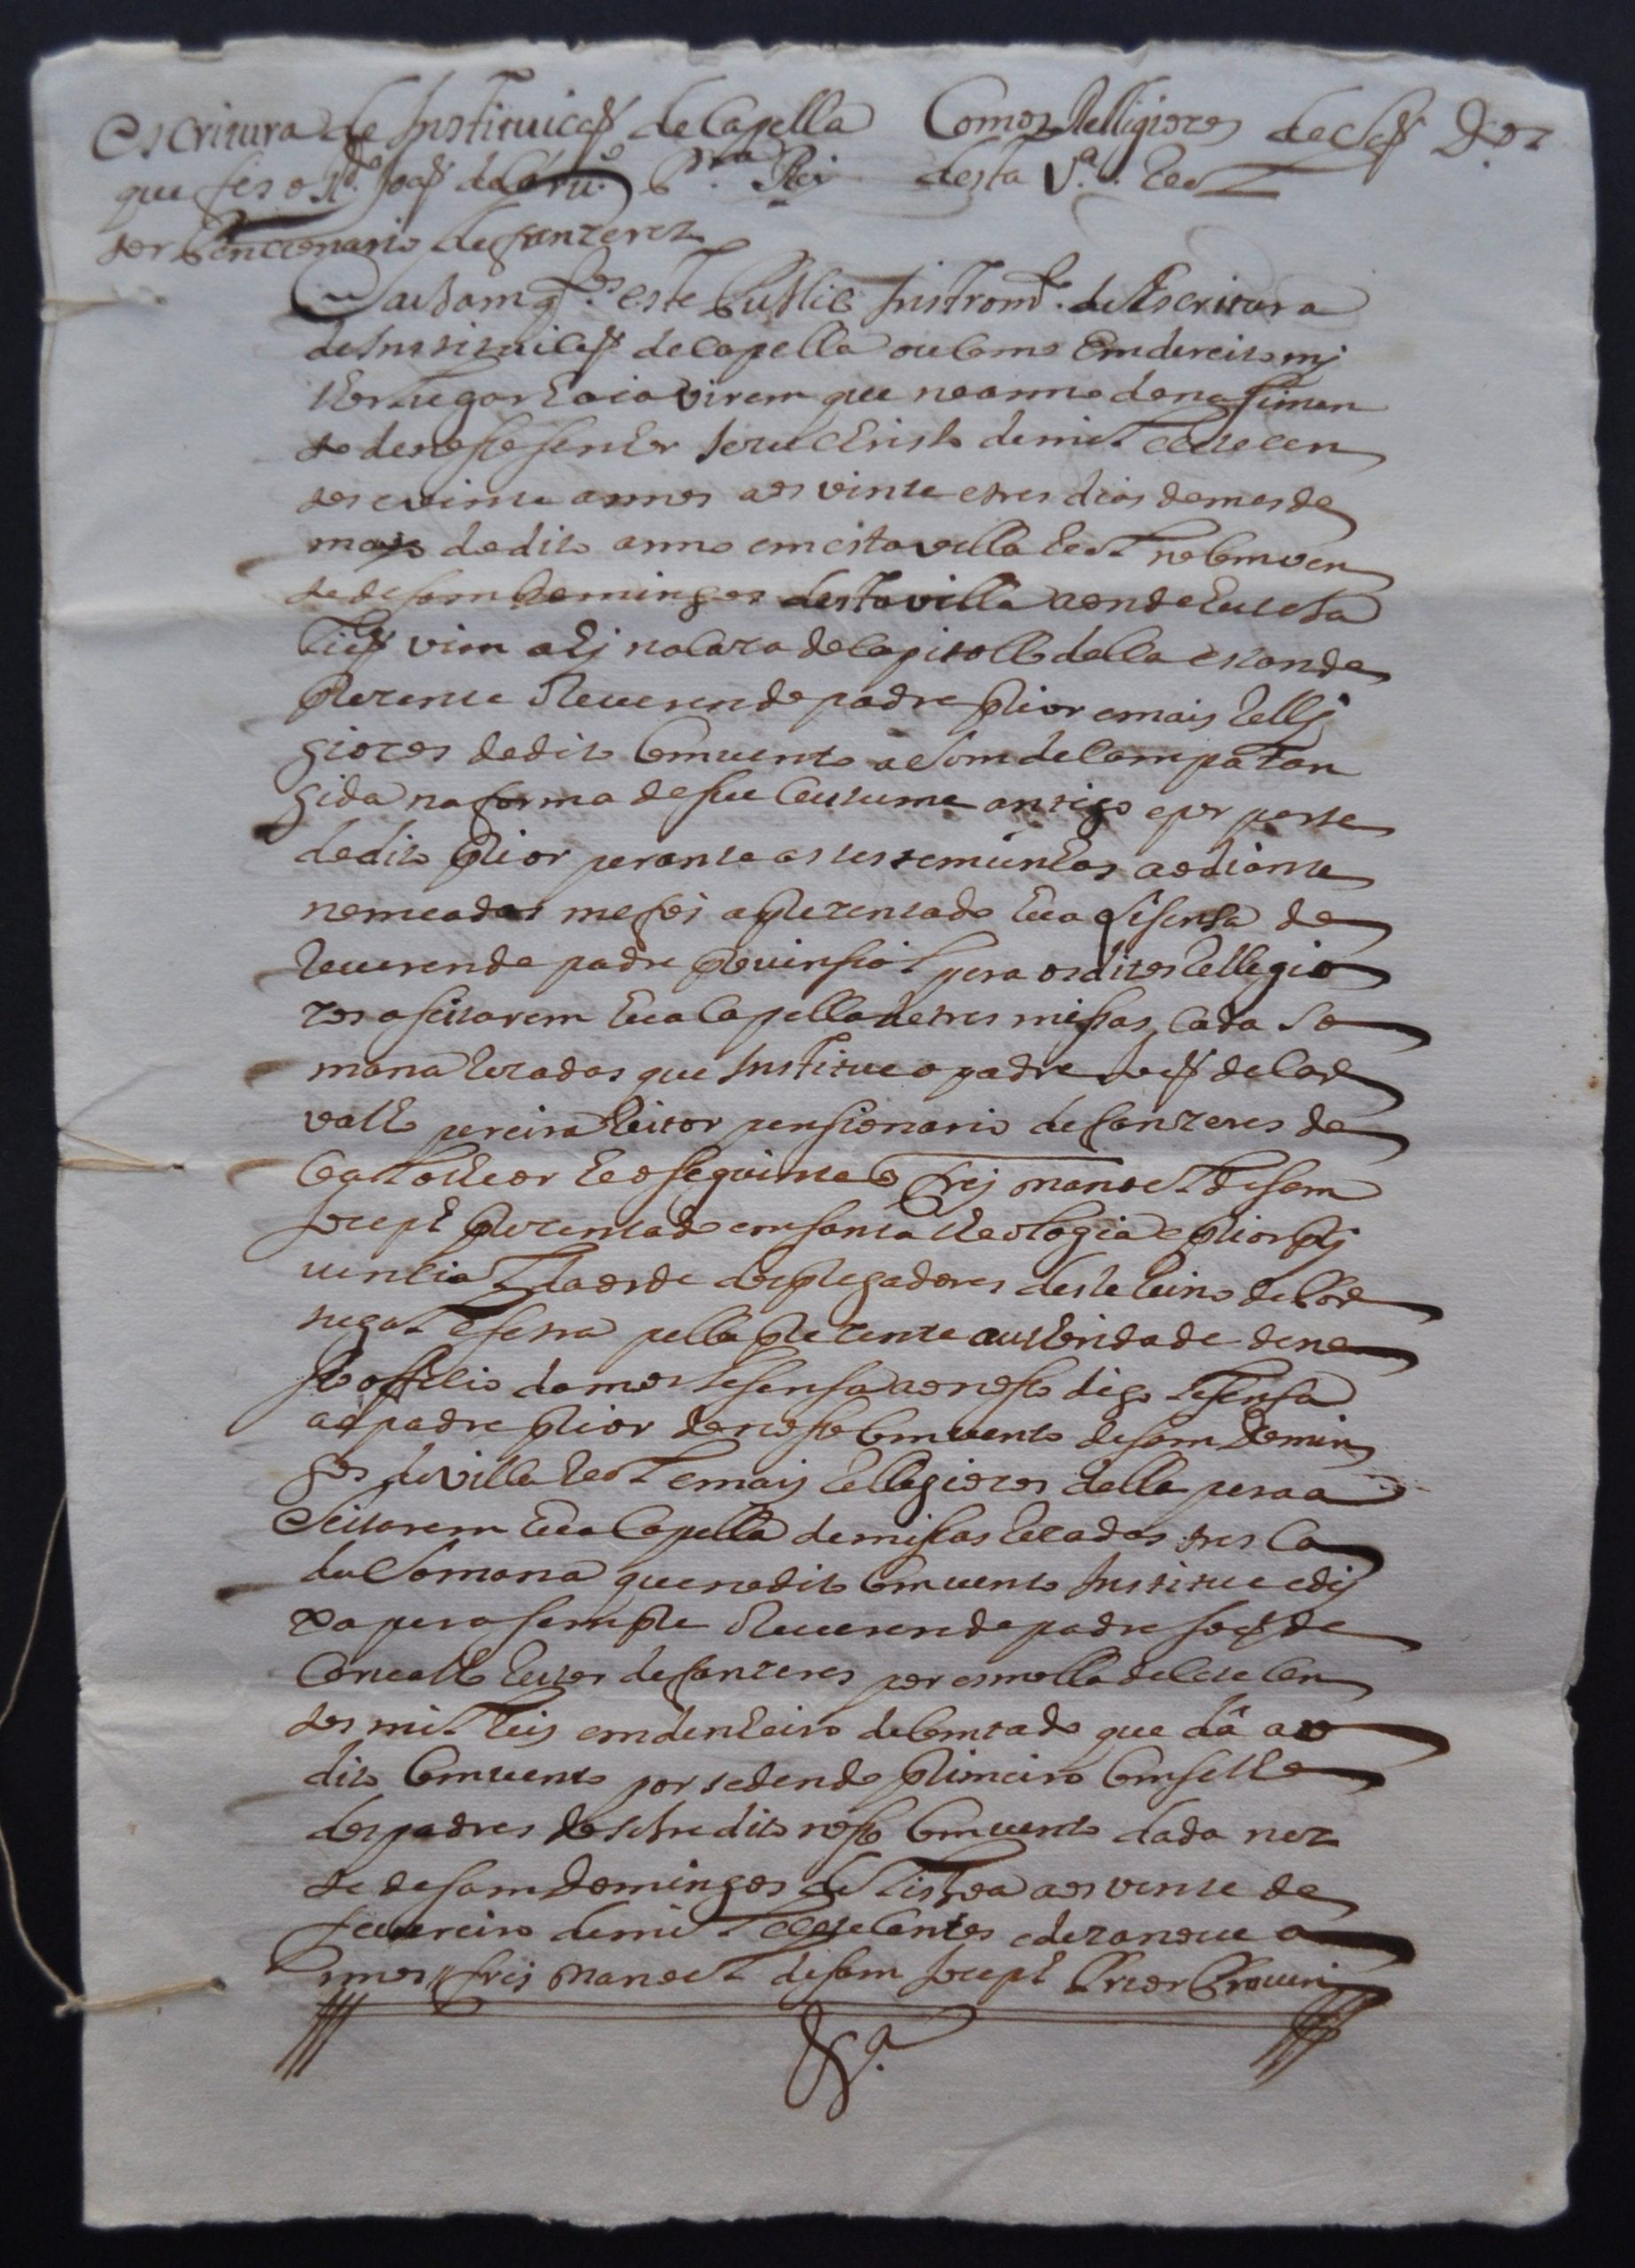 escritura de Instituicaõ de Capella Com os Relligiozos de Saõ D.os
que fes o R.do Joaõ de Caru.o P.ra Rei desta V.a Real
tor Pencionario de fanzerez
Saibam q.tos este Publico Instrom.to de Escritura
de Instituicaõ de Capella ou Como Em dereito mi
lhor lugar haia virem que no anno do nasimen
to de nosso senhor Jezu christo de mil e setecen
tos e vinte annos aos vinte e tres dias do mes de
majo do dito anno em esta villa Real no Comven
to de sam Domingos desta villa aonde eu taba
liaõ vim ahi na caza do Capitollo della estando
prezente o Reuerendo padre prior e mais relli
giozos do dito Comuento a som de Campa tan
gida na forma de seu Custume antigo e por parte
do dito prior perante as testemunhas ao diante
nomeadas me foi aprezentado hua lisensa do
Reuerendo padre prouinsial pera os ditos rellegio
zos aseitarem hua Capella de tres missas Cada so
mana rezadas que Institue o padre Joaõ de Car
valho pereira Reitor pensionario de fanzeres do
Cal o theor he o seguinte frei manoel de sam
Joceph prezentado em santa theologia e prior pro
uincial da orde dos pregadores deste Reino de Por
tugal e setra pella prezente authoridade de no
sso offisio damos lisensa ao nosso digo lisensa
ao padre prior do nosso Comuento de sam Domin
gos de villa Real e mais rellegiozos delle pera a
seitarem hua Capella de missas rezadas tres Ca
da somana que no dito Comuento Institue e dei
xa pera sempre o Reuerendo padre Joaõ de
Carualho Reitor de fanzeres por esmolla de sete Cen
tos mil reis em dinheiro de Comtado que dá ao
dito Comuento porsedendo primeiro Comselho
dos padres do sobredito nosso Comuento dada nes
te de sam Domingos de Lisboa aos vinte de
feuereiro de mil e setecentos e dezanoue a
nnos frei Manoel de sam Joceph Prior Prouin
S.a